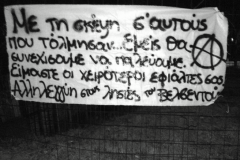 Με τη σκέψη σ'αυτούς
που τόλμησαν... Εμείς θα
συνεχίσουμε να παλεύουμε.
Είμαστε οι χειρότεροι εφιάλτες σας
Αλληλεγγύη στους ληστές του Βελβεντού